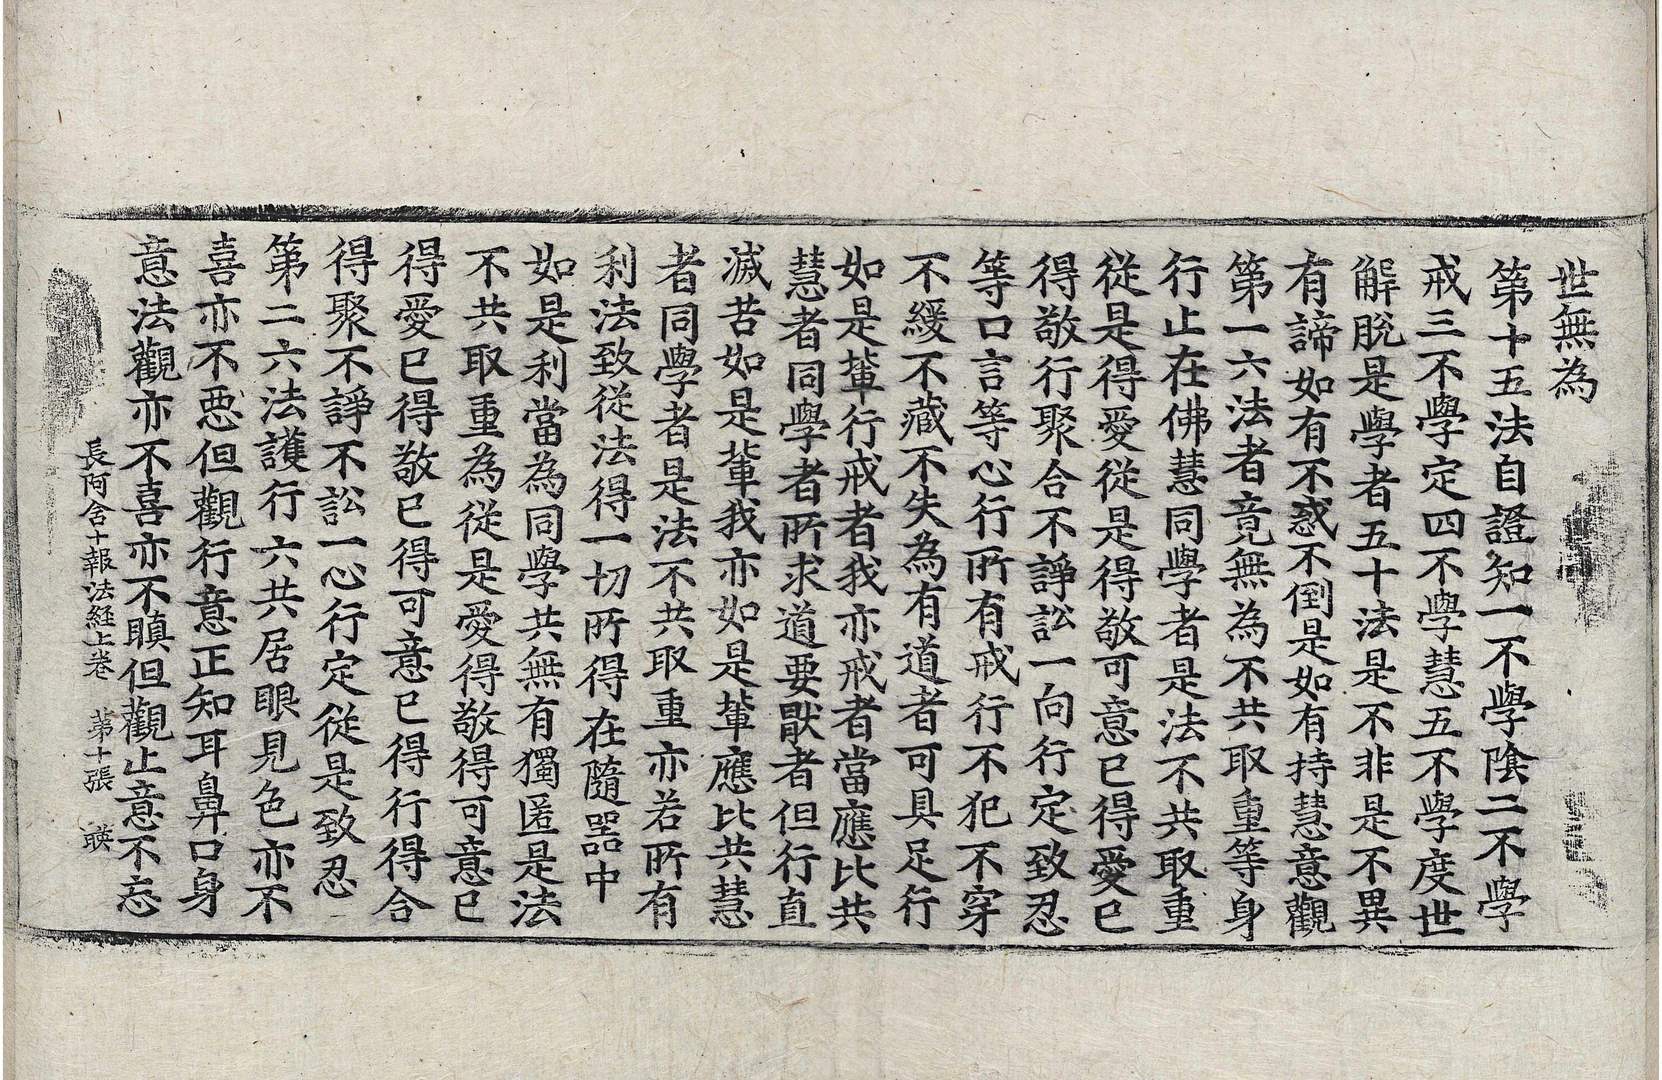 世無為
第十五法自證知一不學陰二不學
戒三不學定四不學慧五不學度世
解脫是學者五十法是不非是不異
有諦如有不惑不倒是如有持慧意觀
第一六法者竟無為不共取重等身
行止在佛慧同學者是法不共取重
從是得愛從是得敬可意已得愛已
得敬行聚合不諍訟一向行定致忍
等口言等心行所有戒行不犯不穿
不緩不藏不失為有道者可具足行
如是軰行戒者我亦戒者當應比共
慧者同學者所求道要猒者但行直
滅苦如是軰我亦如是軰應比共慧
者同學者是法不共取重亦若所有
利法致從法得一切所得在隨器中
如是利當為同學共無有獨匿是法
不共取重為從是愛得敬得可意已
得愛已得敬已得可意已得行得合
得聚不諍不訟一心行定從是致忍
第二六法護行六共居眼見色亦不
喜亦不惡但觀行意正知耳鼻口身
意法觀亦不喜亦不瞋但觀止意不忘
長阿含十報法經上卷 第十張 映